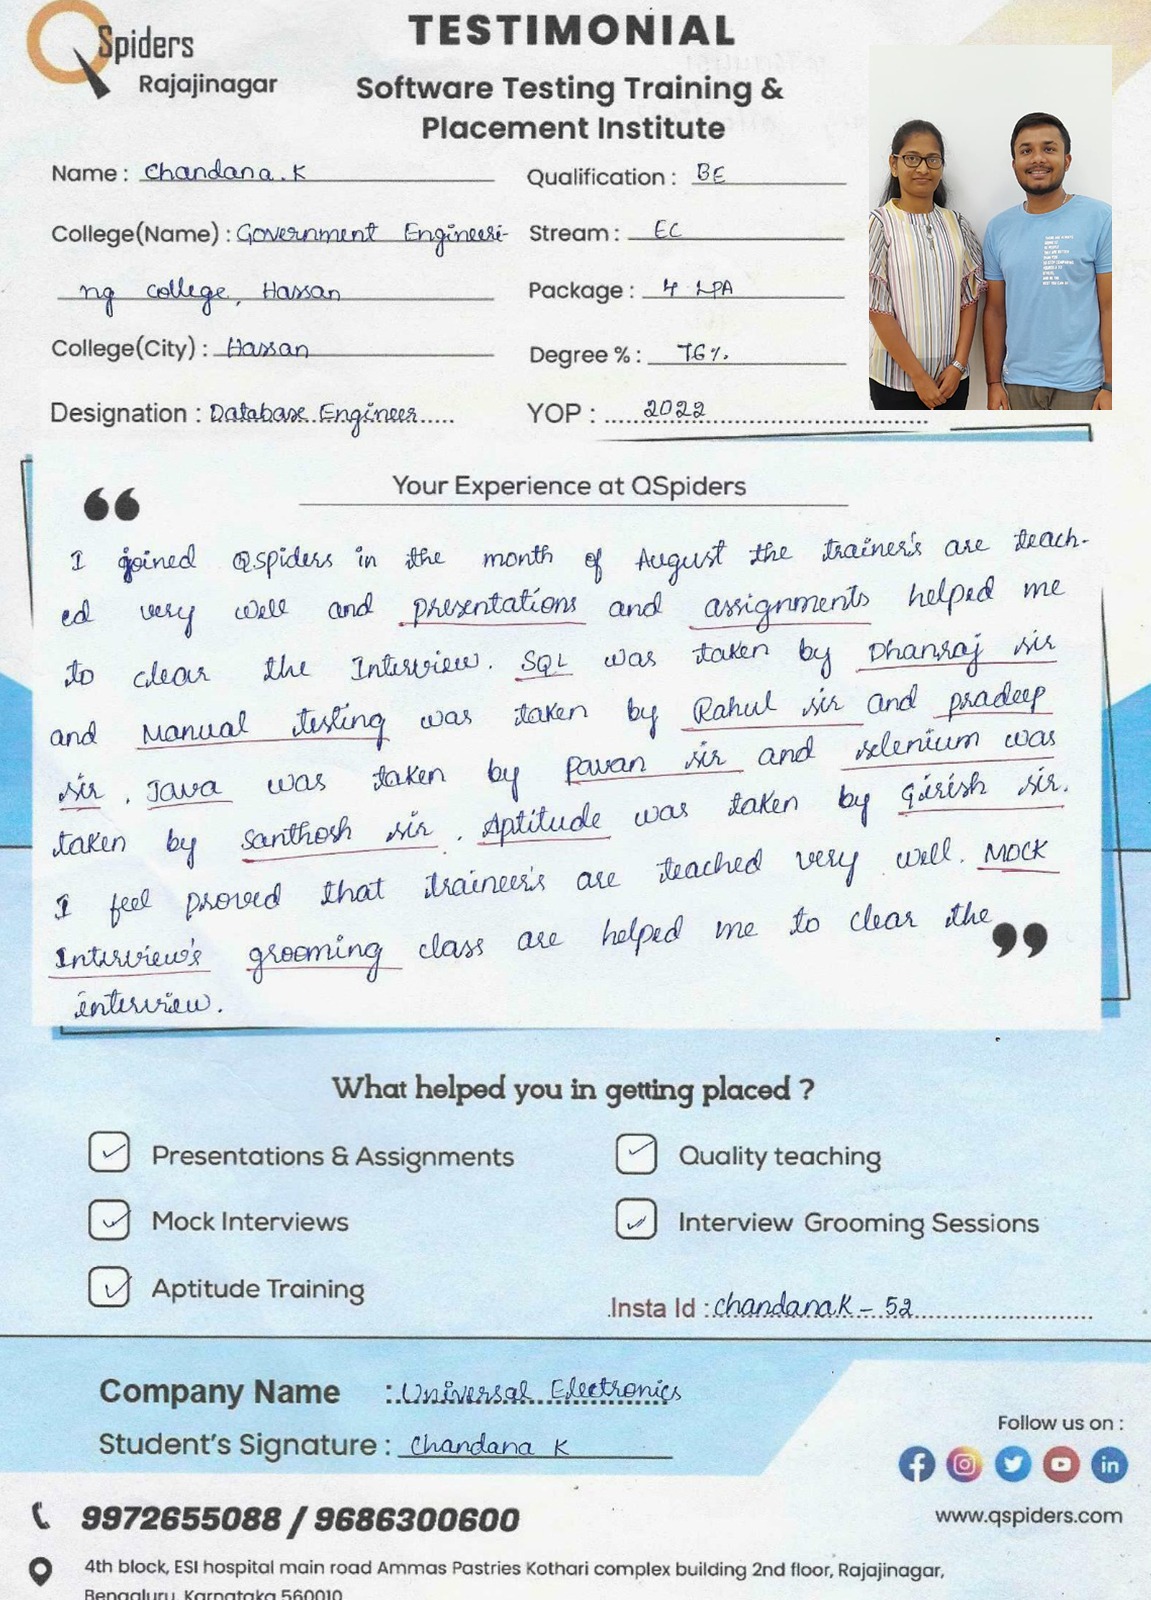 QSpiders
Rajajinagar
TESTIMONIAL
Software Testing Training &
Placement Institute
Name : Chandana.K
Qualification : BE
College(Name) : Government Engineeri-
Stream : EC
ng college, Hassan
Package : 4 LPA
College(City) : Hassan
Degree % : 76%
Designation : Database Engineer
YOP : 2022
Your Experience at QSpiders
I joined Qspiders in the month of August the trainer's are teach-
ed very well and presentations and assignments helped me
to clear the Interview. SQL was taken by Dhanraj sir
and Manual testing was taken by Rahul sir and pradeep
sir. Java was taken by pavan sir and selenium was
taken by Santhosh sir. Aptitude was taken by Girish sir.
I feel proved that traineer's are teached very well. MOCK
Interview's grooming class are helped me to clear the
interview.
What helped you in getting placed ?
Presentations & Assignments
Quality teaching
Mock Interviews
Interview Grooming Sessions
Aptitude Training
Insta Id : chandanaK - 52
Company Name : Universal Electronics
Student's Signature : Chandana K
Follow us on :
9972655088 / 9686300600
www.qspiders.com
4th block, ESI hospital main road Ammas Pastries Kothari complex building 2nd floor, Rajajinagar,
Bengaluru, Karnataka 560010